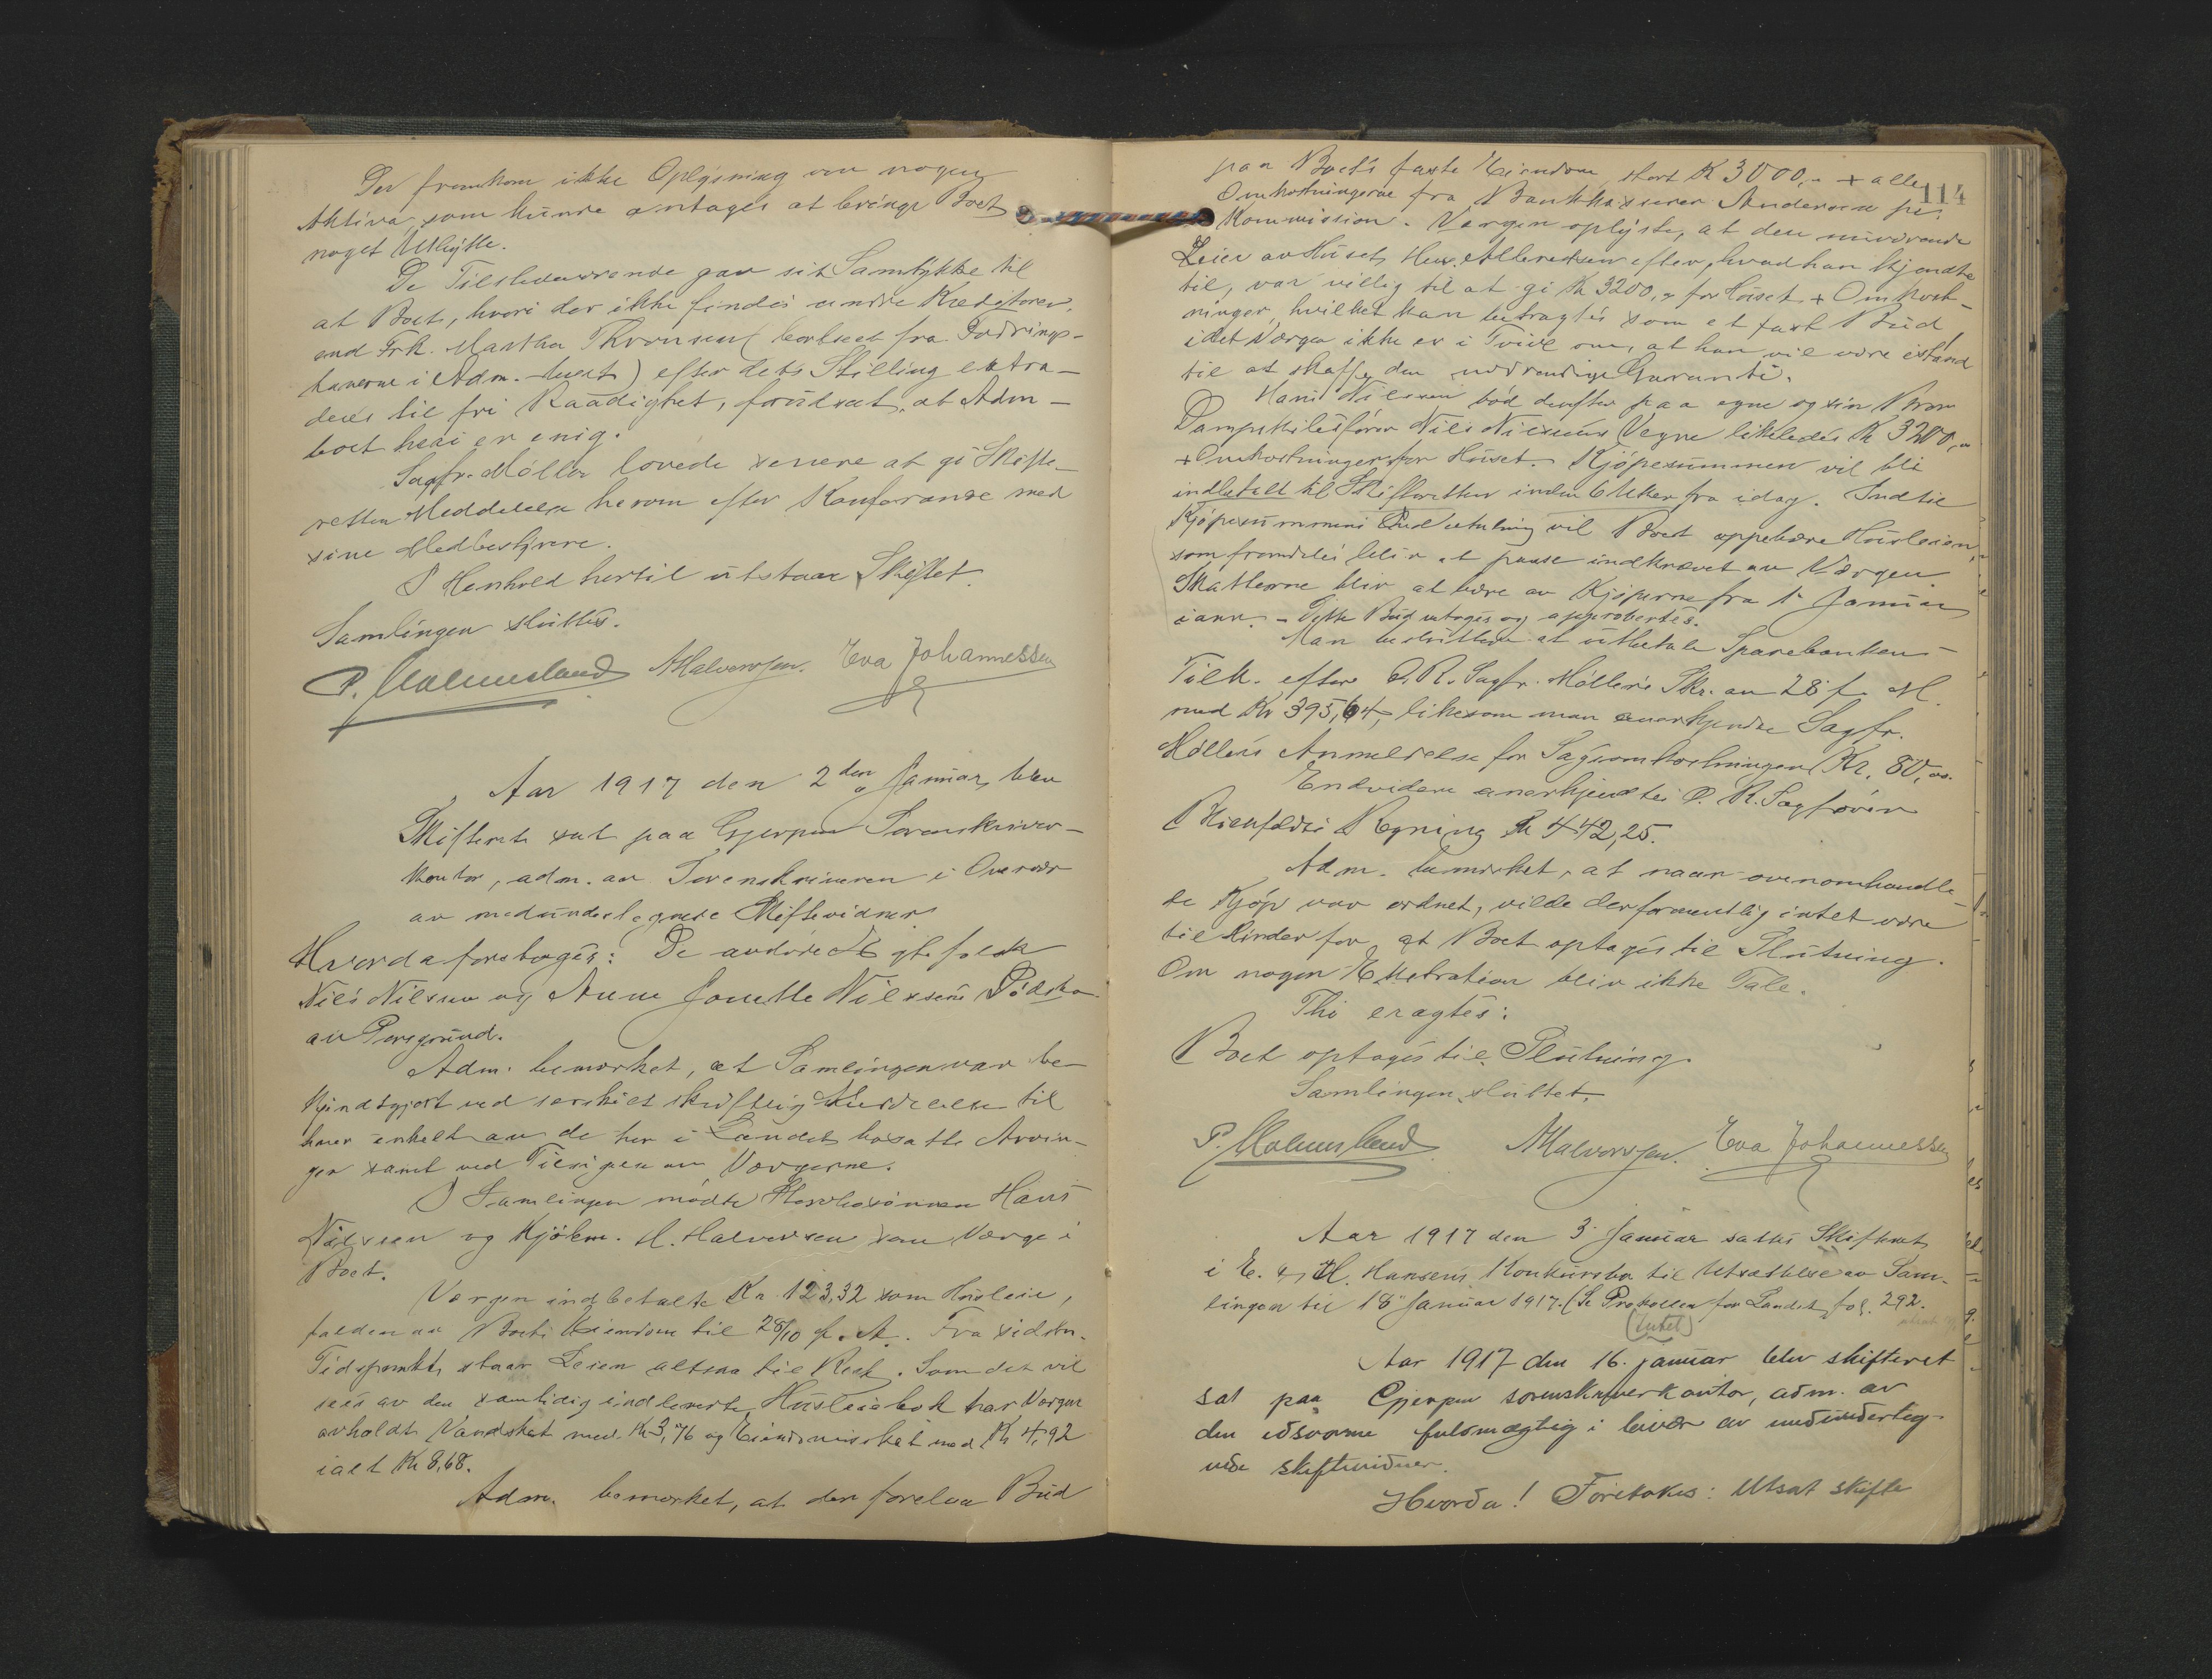 Der fremkom ikke Oplysning om nogen
Aktiva, som kunde antages at bringe Boet
noget Utbytte.
De Tilstedeværende gav sit Samtykke til
at Boet, hvori der ikke findes andre Kreditorer
end Frk. Martha Thronsen (bortseet fra Fodrings-
haverne i Adm.-boet) efter dets Stilling extra-
deres til fri Raadighet, forutsat, at Adm-
boet heri er enig.
Sagfr. Møller lovede senere at gi Skifte-
retten Meddelelse herom efter Konferanse med
sine Medbestyrere.
I Henhold hertil utstaar Skiftet.
Samlingen sluttet.
P. Malmsland AHalvorsen. Eva Johannessen
Aar 1917 den 2den Januar blev
Skifteret sat paa Gjerpen Sorenskriver-
kontor, adm. av Sorenskriveren i Overvær
av medundertegnede Skiftevidner
Hvorda foretoges: De avdøde Egtefolk
Nils Nilsen og Anne Jonette Nilssens Dødsbo
av Porsgrund.
Adm. bemerket, at Samlingen var be-
kjendtgjort ved særskilt skriftlig Meddelelse til
hver enkelt av de her i Landet bosatte Arvin-
ger samt ved Tilsigelse av Værgerne.
I Samlingen mødte Hans
Nilssen og Kjøbm. H. Halvorsen som Værge i
Boet.
Værgen indbetalte Kr. 123,32 som Husleie,
falden av Boets Eiendom til 28/10 f. A. Fra sidstn.
Tidspunkt staar Leien altsaa til Rest. Som det vil
sees av den samtidig indleverte Husleiebok har Værgen
avholdt Vandskat med Kr 3,76 og Eiendomsskat med Kr 4,92
ialt Kr 8,68.
Adm. bemerket, at der forelaa Bud
114
paa Boets faste Eiendom stort Kr 3000,- + alle
Omkostningerne fra Bankkasserer Andersen pr.
Kommission. Værgen oplyste, at den nuværende
Leier av Huset, efter, hvad han kjendte
til, var villig til at gi Kr 3200,- for Huset + Omkost-
ninger, hvilket kan betragtes som et fast Bud
idet Værgen ikke er i Tvivl om, at han vil være istand
til at skaffe den nødvendige Garanti.
Hans Nilssen bød derefter paa egne og sin Bror
Dampskibsfører Nils Nilssens Vegne likeledes Kr 3200,-
+ Omkostninger for Huset. Kjøpesummen vil bli
indbetalt til Skifteretten inden 6 Uker fra idag. Indtil
Kjøpesummens Indbetaling vil Boet oppebære Husleien,
som fremdeles blir at passe indkrævet av Værgen.
Skatterne blir at bære av Kjøperne fra 1 Januar
iaar. - Dette Bud antages og approbertes.
Man besluttede at utbetale Sparebanken
Tilh. efter O.R. Sagfr. Møllers Skr. av 28 f. M.
med Kr 395,64, likesom man anerkjendte Sagfr.
Møllers Anmeldelse for Sagsomkostninger Kr. 80,00.
Endvidere anerkjendtes O. R. Sagfører
Regning Kr 442,25.
Adm. bemerket, at naar ovenomhandle-
de Kjøp var ordnet, vilde der formentlig intet være
til Hinder for at Boet optages til Slutning.
Om nogen Extraktion blir ikke Tale.
Thi eragtes:
Boet optages til Slutning.
Samlingen sluttet.
P. Malmsland AHalvorsen. Eva Johannessen
Aar 1917 den 3 Januar sattes Skifteret
i E. & H. Hansens Konkursbo til Utsættelse av Sam-
lingen til 18 Januar 1917. (Se Protokollen for Landet fol. 292.
Aar 1917 den 16. januar blev skifteret
sat paa Gjerpen sorenskriverkontor, adm. av
den edsvorne fuldmægtig i levær av medunderteg-
nede skiftevidner.
Hvorda! Foretokes: Utsat skifte